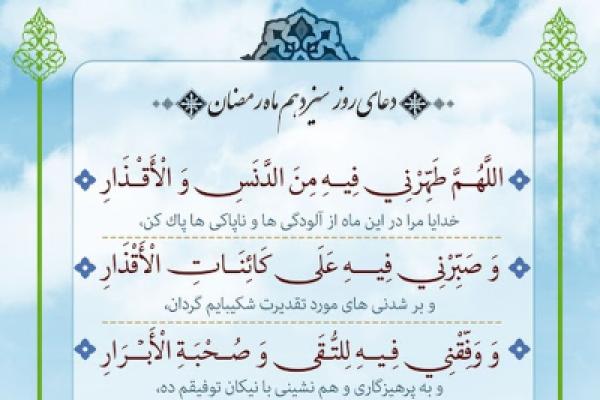 دعای روز سیزدهم ماه رمضان
اللَّهُمَّ طَهِّرْنِي فِيهِ مِنَ الدَّنَسِ وَ الْأَقْذَارِ
خدایا مرا در این ماه از آلودگی ها و ناپاکی ها پاك کن،
وَ صَبِّرْنِي فِيهِ عَلَى كَائِنَاتِ الْأَقْذَارِ
و بر شدنی های مورد تقدیرت شکیبایم گردان،
وَ وَفِّقْنِي فِيهِ لِلتُّقَى وَ صُحْبَةِ الْأَبْرَارِ
و به پرهیزگاری و هم نشینی با نیکان توفیقم ده،